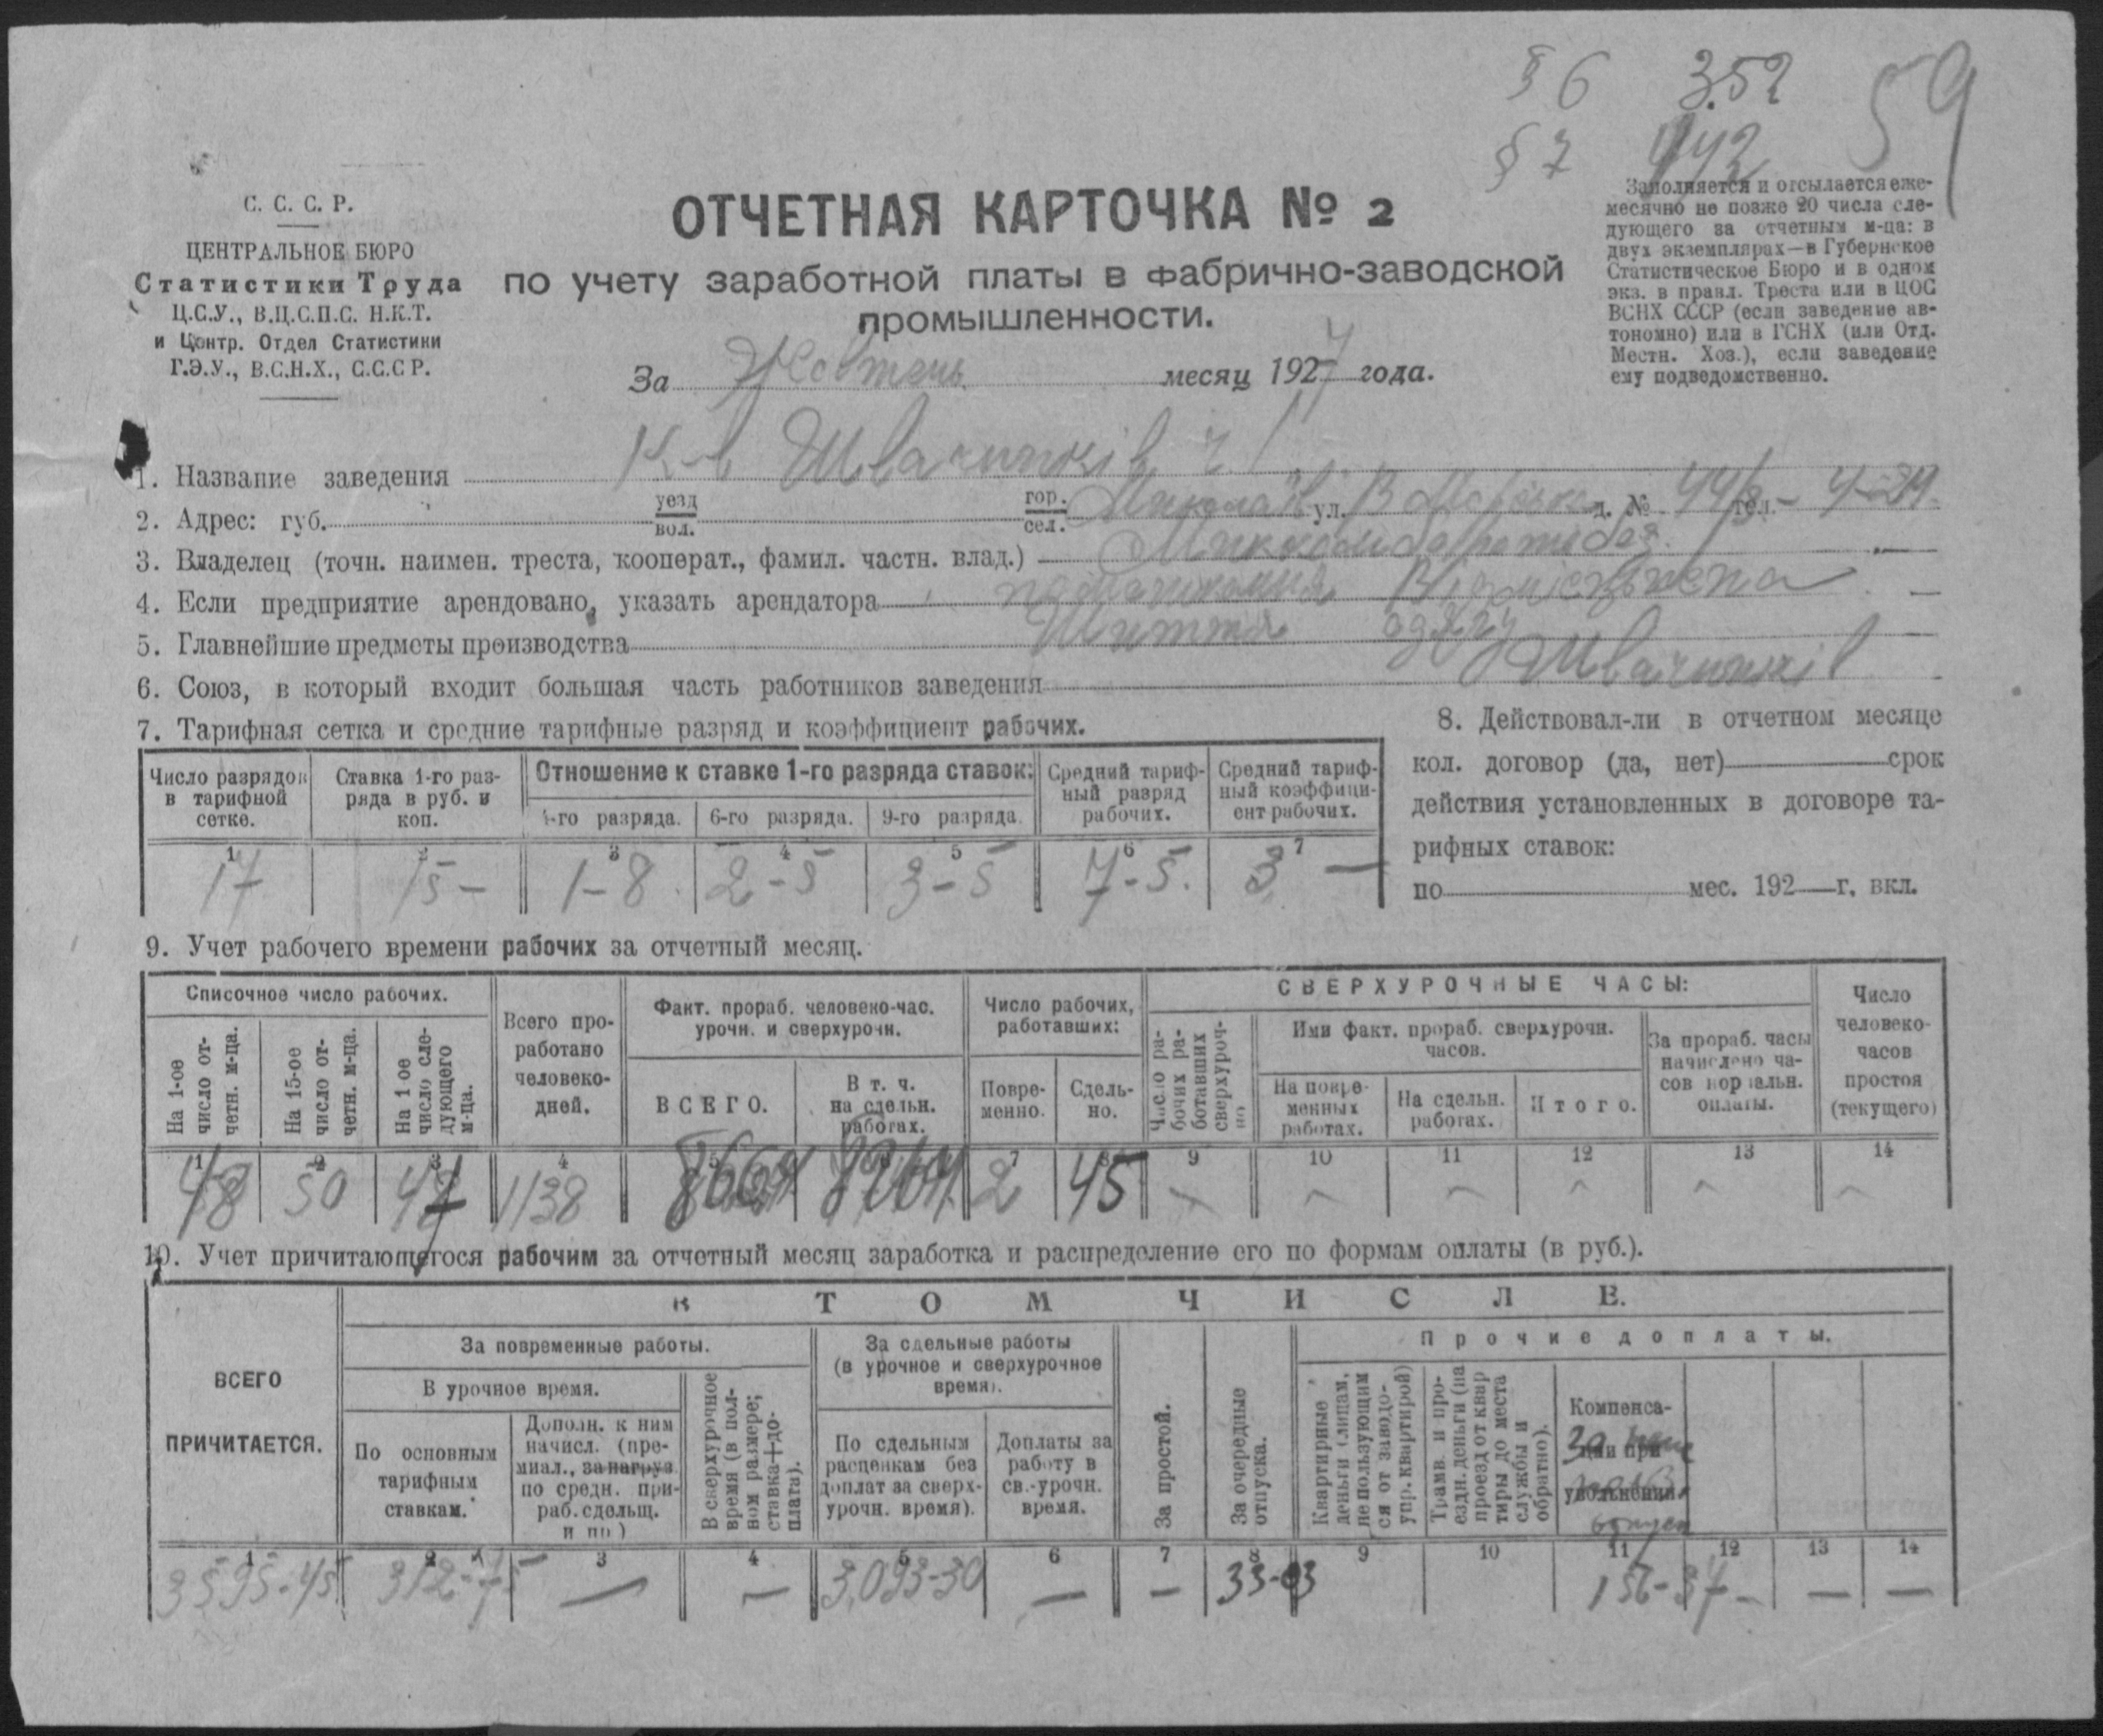 § 6 3.52
§ 7 442
59
С. С. С. Р.
ЦЕНТРАЛЬНОЕ БЮРО
Статистики Труда
Ц.С.У., В.Ц.С.П.С. Н.К.Т.
и Центр. Отдел Статистики
Г.Э.У., В.С.Н.Х., С.С.С Р.
ОТЧЕТНАЯ КАРТОЧКА № 2
по учету заработной платы в фабрично-заводской
промышленности.
За Жовтень месяц 1927 года.
Заполняется и отсылается еже-
месячно не позже 20 числа сле-
дующего за отчетным м-ца: в
двух экземплярах—в Губернское
Статистическое Бюро и в одном
экз. в правл. Треста или в ЦОС
ВСНХ СССР (если заведение ав-
тономно) или в ГСНХ (или Отд.
Местн. Хоз.), если заведение
ему подведомственно.
1. Название заведения Швачників
2. Адрес: губ. уезд вол. гор. сел. Миколаїв ул. д. № тел. - 4-29
3. Владелец (точн. наимен. треста, кооперат., фамил. частн. влад.)
4. Если предприятие арендовано, указать арендатора
5. Главнейшие предметы производства Шиття одягу
6. Союз, в который входит большая часть работников заведения Швачників
7. Тарифная сетка и средние тарифные разряд и коэффициент рабочих.
Число разрядов в тарифной сетке.
Ставка 1-го раз-ряда в руб. и коп.
Отношение к ставке 1-го разряда ставок:
4-го разряда. 6-го разряда. 9-го разряда.
Средний тариф-ный разряд рабочих.
Средний тариф-ный коэффици-ент рабочих.
1 2 3 4 5 6 7
17 15- 1-8 2-5 3-5 7-5. 3 —
8. Действовал-ли в отчетном месяце
кол. договор (да, нет) срок
действия установленных в договоре та-
рифных ставок:
по мес. 192 г. вкл.
9. Учет рабочего времени рабочих за отчетный месяц.
Списочное число рабочих.
На 1-ое число от-четн. м-ца.
На 15-ое число от-четн. м-ца.
На 1 ое число сле-дующего м-ца.
Всего про-работано человеко-дней.
Факт. прораб. человеко-час. урочн. и сверхурочн.
ВСЕГО.
В т. ч. на сдельн. работах.
Число рабочих, работавших:
Повре-менно.
Сдель-но.
СВЕРХУРОЧНЫЕ ЧАСЫ:
Число ра-бочих ра-ботавших сверхуроч-но
Ими факт. прораб. сверхурочн. часов.
На повре-менных работах.
На сдельн. работах.
Итого.
За прораб. часы начислено ча-сов нормальн. оплаты.
Число человеко-часов простоя (текущего)
1 2 3 4 5 7 8 9 10 11 12 13 14
48 50 47 1138 8664 2 45
10. Учет причитающегося рабочим за отчетный месяц заработка и распределение его по формам оплаты (в руб.).
ВСЕГО ПРИЧИТАЕТСЯ.
В ТОМ ЧИСЛЕ.
За повременные работы.
В урочное время.
По основным тарифным ставкам.
Дополн. к ним начисл. (пре-миал., за нагруз. по средн. при-раб. сдельщ. и пр.)
В сверхурочное время (в пол-ном размере; ставка+до-плата).
За сдельные работы (в урочное и сверхурочное время).
По сдельным расценкам без доплат за сверх-урочн. время).
Доплаты за работу в св.-урочн. время.
За простой.
За очередные отпуска.
Прочие доплаты.
Квартирные деньги (лицам, не пользующим ся от заводо-упр. квартирой)
Трамв. и про-ездн. деньги (на проезд от квар тиры до места службы и обратно).
Компенса-ции при увольнении
1 2 3 4 5 6 7 8 9 10 11 12 13 14
3595-45 312-75 — — 3,093-30 — — 33-03 156-37 - — —